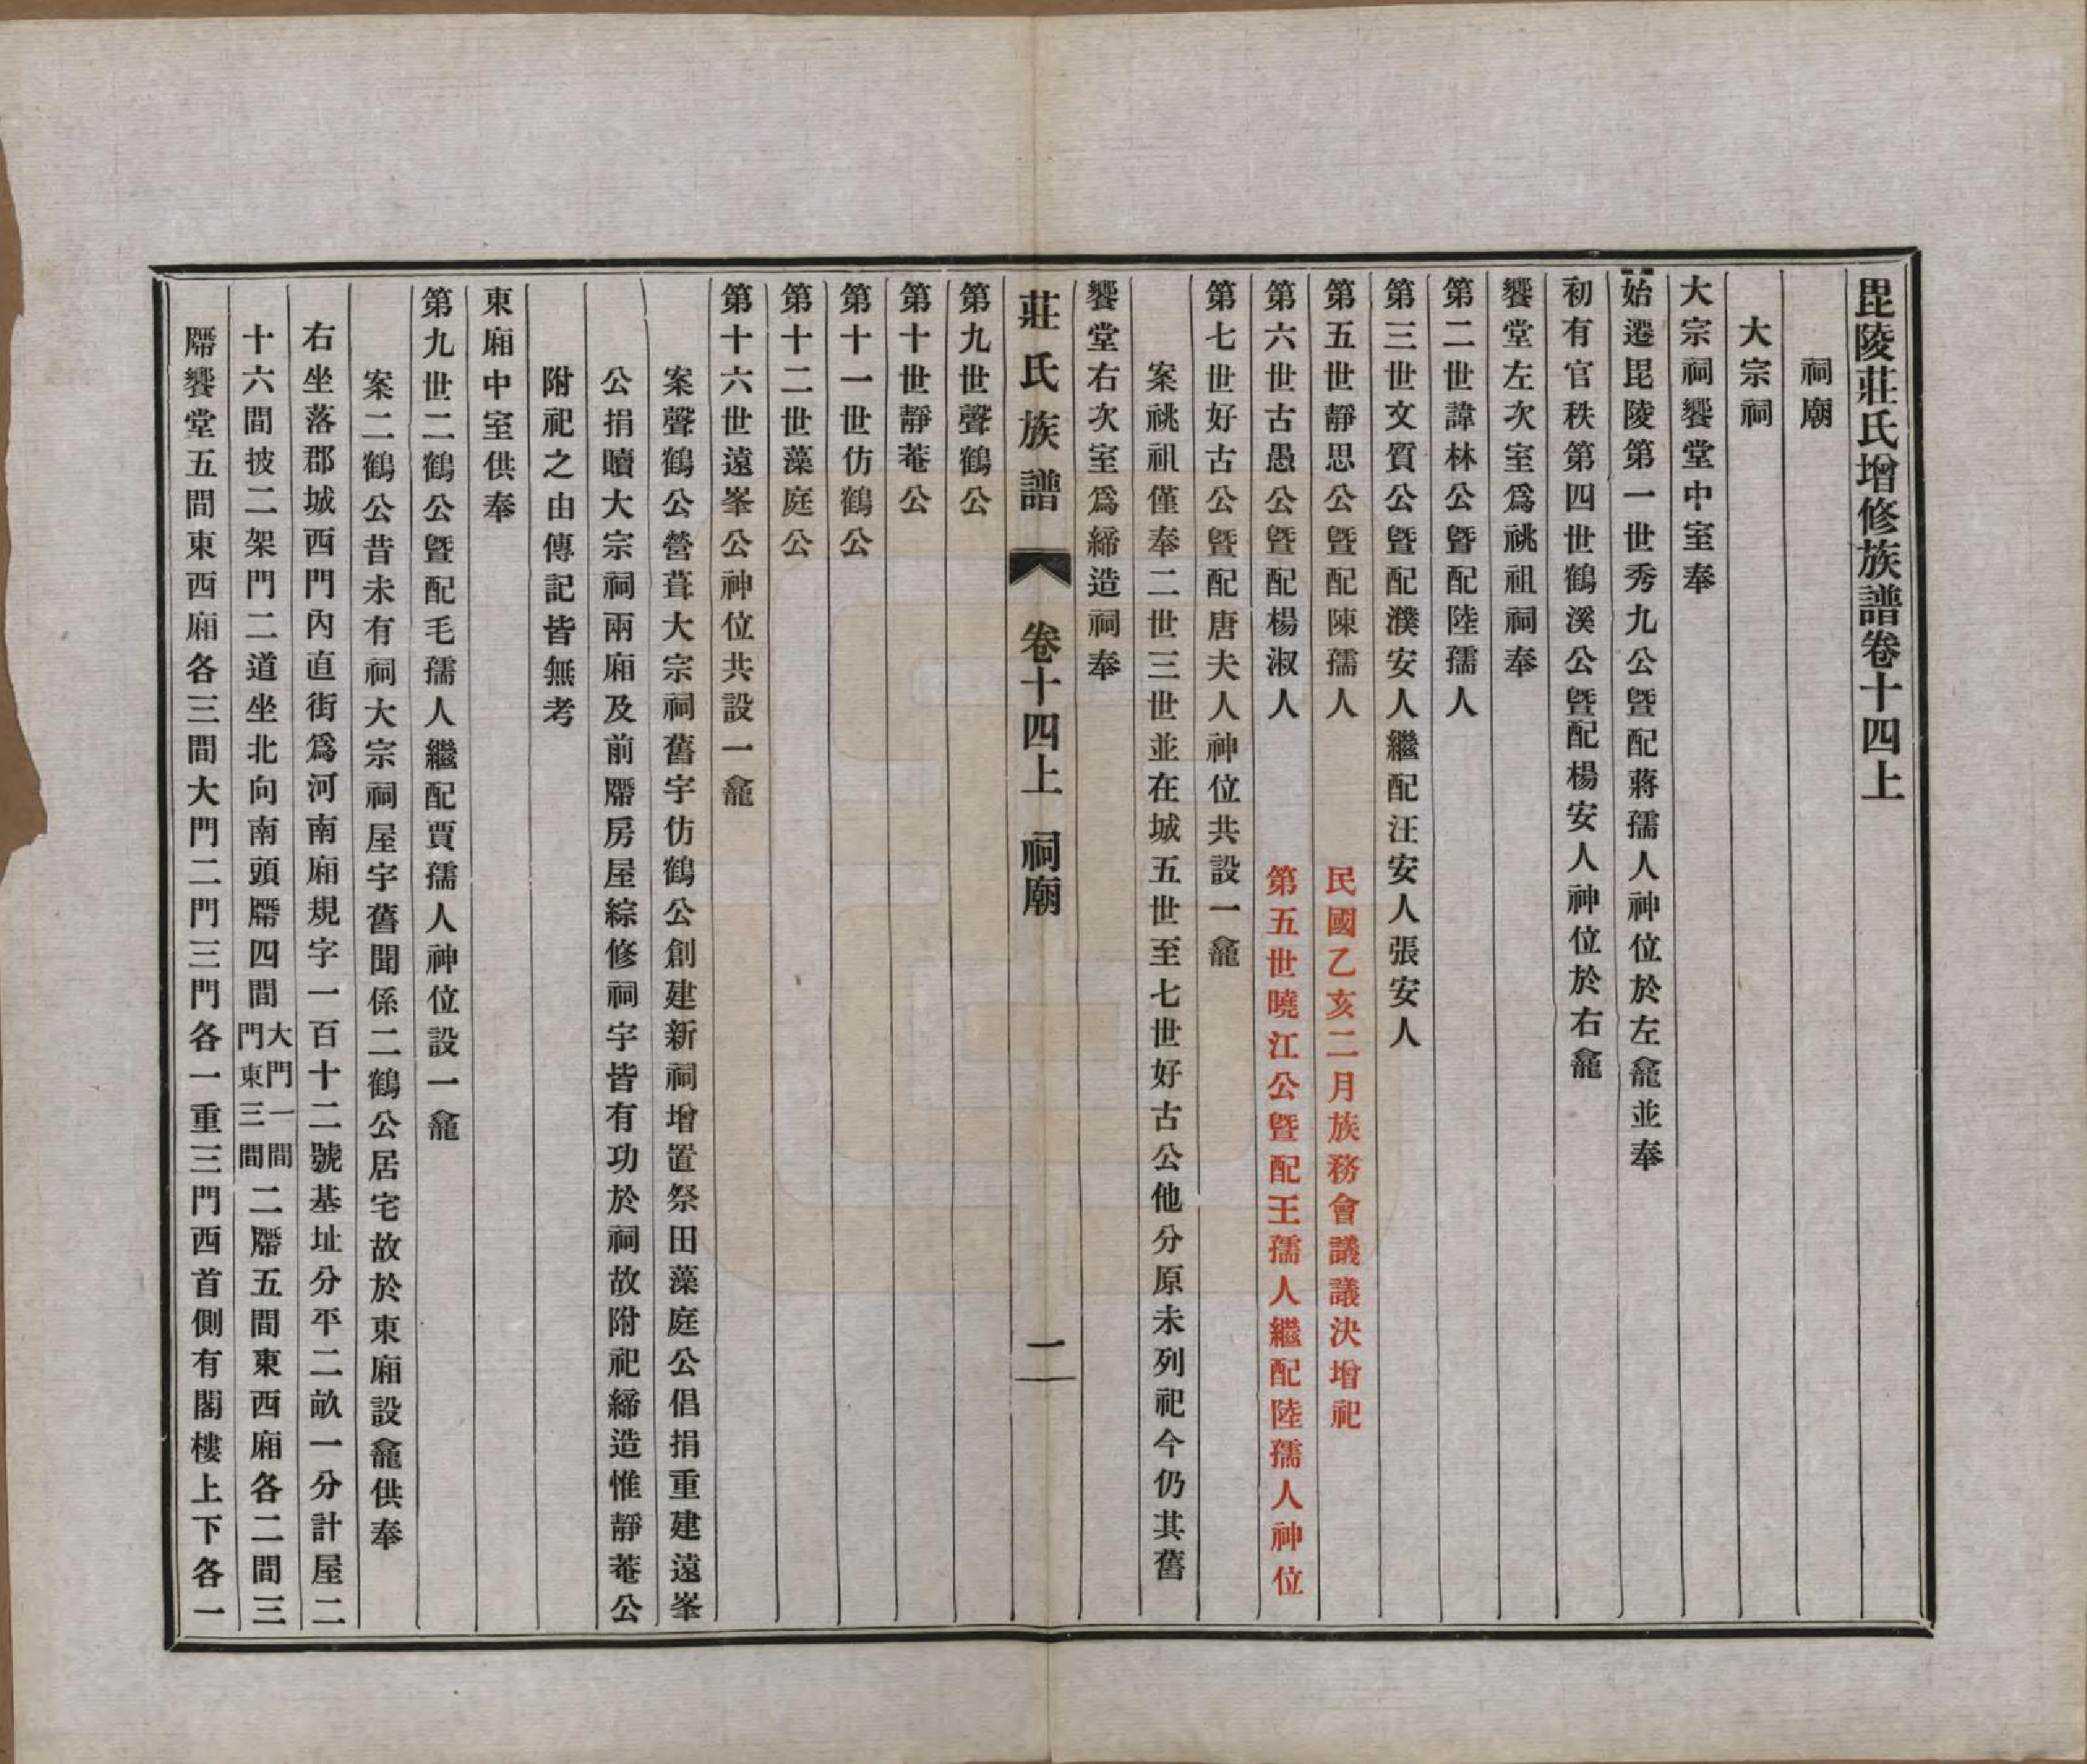 毘陵莊氏增修族譜卷十四上
祠廟
大宗祠
大宗祠饗堂中室奉
始遷毘陵第一世秀九公曁配蔣孺人神位於左龕並奉
初有官秩第四世鶴溪公曁配楊安人神位於右龕
饗堂左次室爲祧祖祠奉
第二世諱林公曁配陸孺人
第三世文質公曁配濮安人繼配汪安人張安人
第五世靜思公曁配陳孺人　民國乙亥二月族務會議議決增祀
第六世古愚公曁配楊淑人　第五世曉江公曁配王孺人繼配陸孺人神位
第七世好古公曁配唐夫人神位共設一龕
案祧祖僅奉二世三世並在城五世至七世好古公他分原未列祀今仍其舊
饗堂右次室爲締造祠奉
莊氏族譜　卷十四上　祠廟　一
第九世聲鶴公
第十世靜菴公
第十一世仿鶴公
第十二世藻庭公
第十六世遠峯公神位共設一龕
案聲鶴公營葺大宗祠舊宇仿鶴公創建新祠增置祭田藻庭公倡捐重建遠峯
公捐贖大宗祠兩廂及前隬房屋綜修祠宇皆有功於祠故附祀締造惟靜菴公
附祀之由傳記皆無考
東廂中室供奉
第九世二鶴公曁配毛孺人繼配賈孺人神位設一龕
案二鶴公昔未有祠大宗祠屋宇舊聞係二鶴公居宅故於東廂設龕供奉
右坐落郡城西門內直街爲河南廂規字一百十二號基址分平二畝一分計屋二
十六間披二架門二道坐北向南頭隬四間大門一間門東三間二隬五間東西廂各二間三
隬饗堂五間東西廂各三間大門二門三門各一重三門西首側有閣樓上下各一